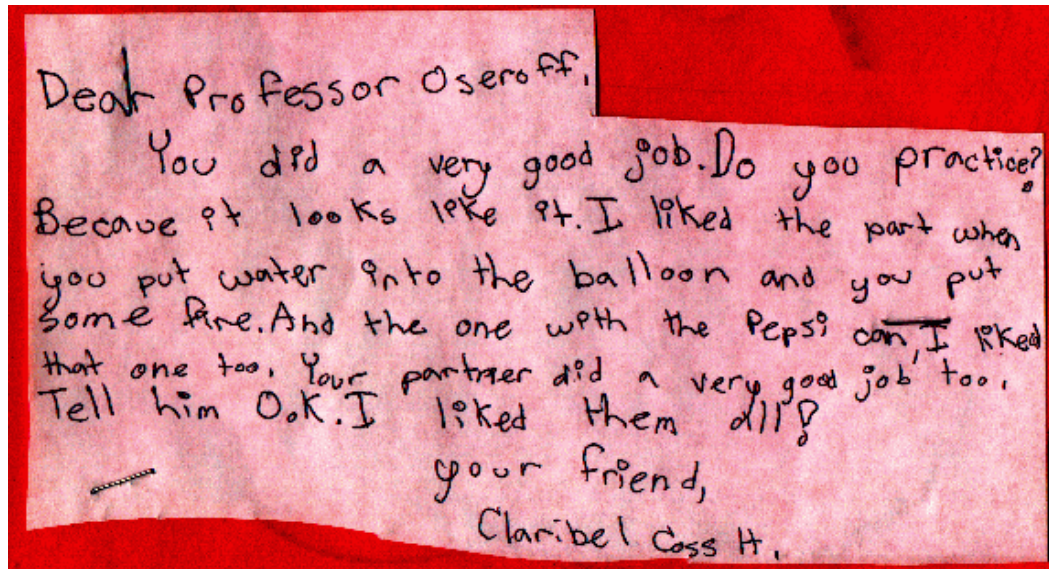 Dear Professor Oseroff,
You did a very good job. Do you practice?
Becaue it looks like it. I liked the part when
you put water into the balloon and you put
some fire. And the one with the Pepsi can, I liked
that one too. Your partner did a very good job too.
Tell him O.K. I liked them all!
your friend,
Claribel Coss H.